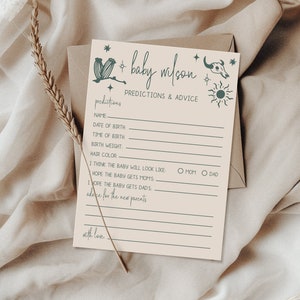 baby wilson
PREDICTIONS & ADVICE
predictions
NAME:
DATE OF BIRTH:
TIME OF BIRTH:
BIRTH WEIGHT:
HAIR COLOR:
I THINK THE BABY WILL LOOK LIKE: MOM DAD
I HOPE THE BABY GETS MOM'S:
I HOPE THE BABY GETS DAD'S:
advice for the new parents
with love: